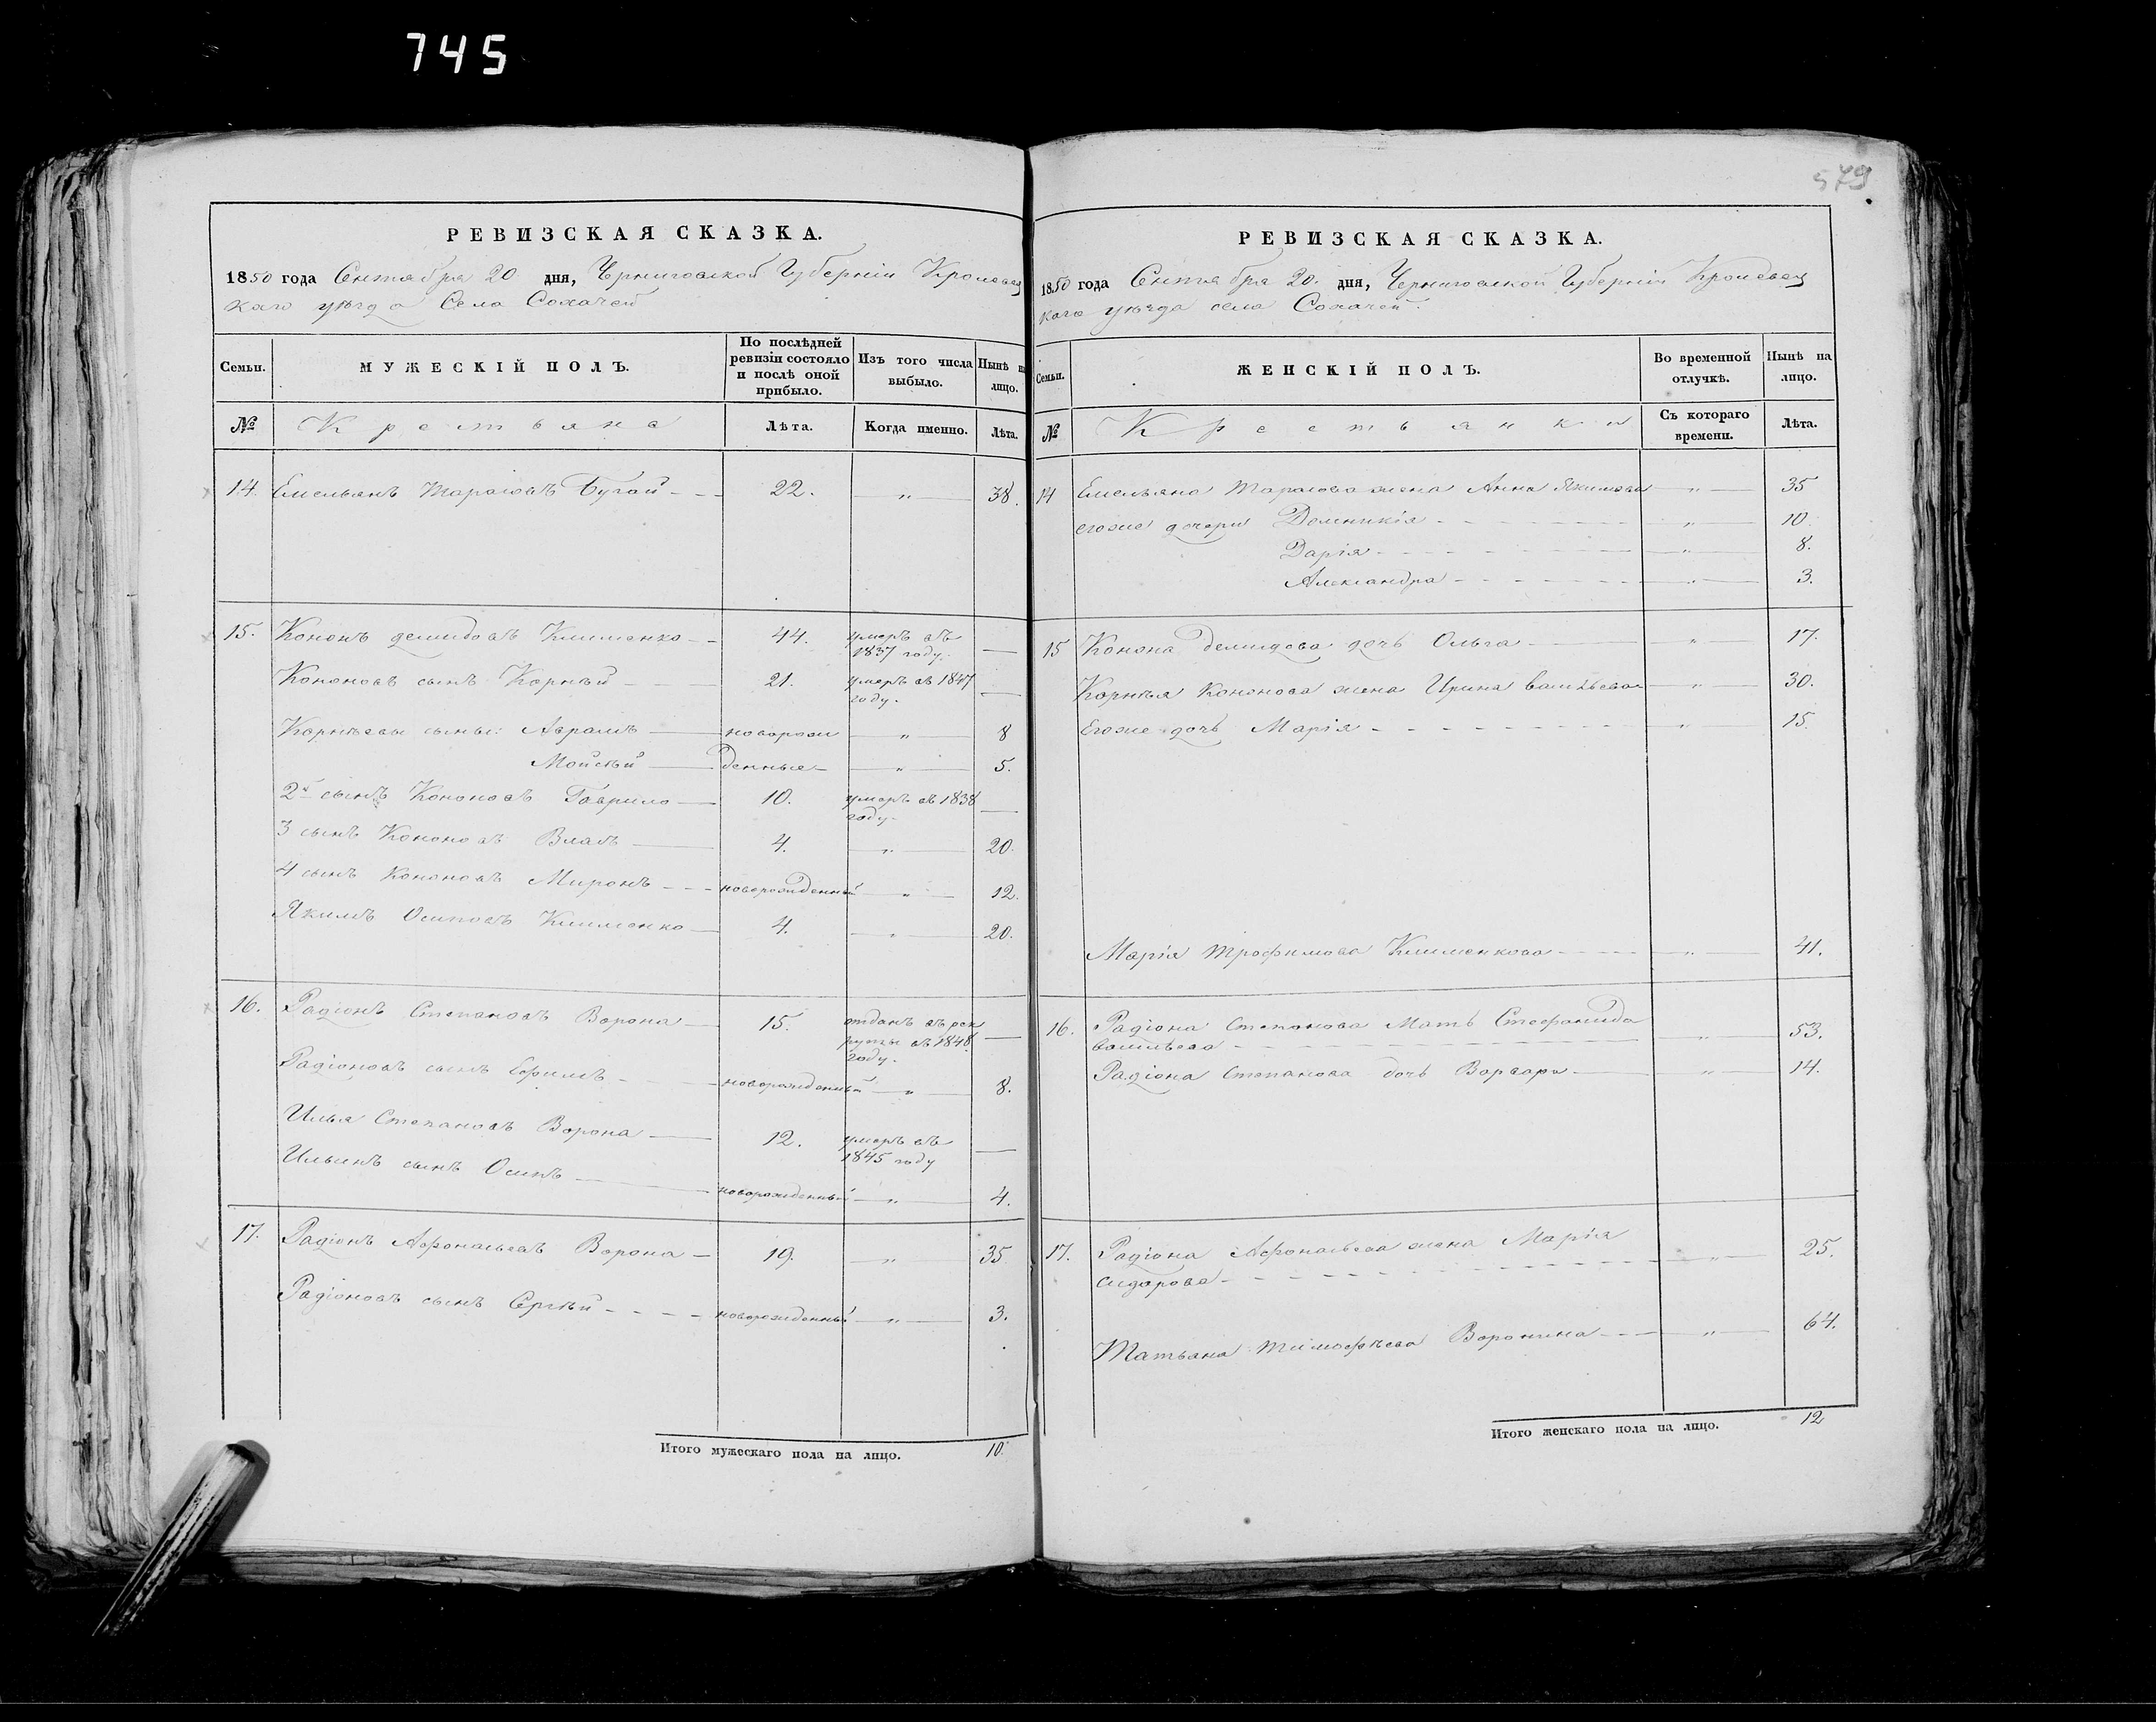 745
579
РЕВИЗСКАЯ СКАЗКА.
1850 года Сентября 20 дня, Черниговской Губерніи Кролевец
каго уѣзда Села Сохачей
Семьи. МУЖЕСКІЙ ПОЛЪ. По послѣдней ревизіи состояло и послѣ оной прибыло. Изъ того числа выбыло. Нынѣ на лицо.
№ Крестьяне Лѣта. Когда именно. Лѣта.
14. Емельянъ Тарасовъ Бугай 22. " 38.
15. Кононъ Демидовъ Клименко 44. умеръ въ 1837 году.
Кононовъ сынъ Корнѣй 21. умеръ въ 1847 году.
Корнѣевы сыны: Аврамъ новорож " 8
Мойсѣй денные " 5.
2й сынъ Кононовъ Гаврило 10. умеръ въ 1838 году
3 сынъ Кононовъ Власъ 4. " 20.
4 сынъ Кононовъ Миронъ новорожденный " 12.
Якимъ Осиповъ Клименко 4. " 20.
16. Радіонъ Степановъ Ворона 15. отданъ въ рек
руты въ 1848 году.
Радіоновъ сынъ Ефимъ новорожденный " 8.
Илья Степановъ Ворона 12. умеръ въ 1845 году
Ильинъ сынъ Осипъ новорожденный " 4.
17. Радіонъ Афонасьевъ Ворона 19. " 35
Радіоновъ сынъ Сергѣй новорожденный " 3.
Итого мужескаго пола на лицо. 10.
РЕВИЗСКАЯ СКАЗКА.
1850 года Сентября 20. дня, Черниговской Губерніи Кролевец
каго уѣзда села Сохачей.
Семьи. ЖЕНСКІЙ ПОЛЪ. Во временной отлучкѣ. Нынѣ на лицо.
№ Крестьянки Съ котораго времени. Лѣта.
14 Емельяна Тарасова жена Анна Якимова " 35
егоже дочери Домникія " 10.
Дарія " 8.
Александра " 3.
15 Конона Демидова дочь Ольга " 17.
Корнѣя Кононова жена Ирина Васильева " 30.
Егоже дочь Марія " 15.
Марія Трофимова Клименкова " 41.
16. Радіона Степанова Мать Стефанида
Васильева " 53.
Радіона Степанова дочь Варвара " 14.
17. Радіона Афонасьева жена Марія
Сидорова " 25.
Татьяна Тимофѣева Воронина " 64.
Итого женскаго пола на лицо. 12